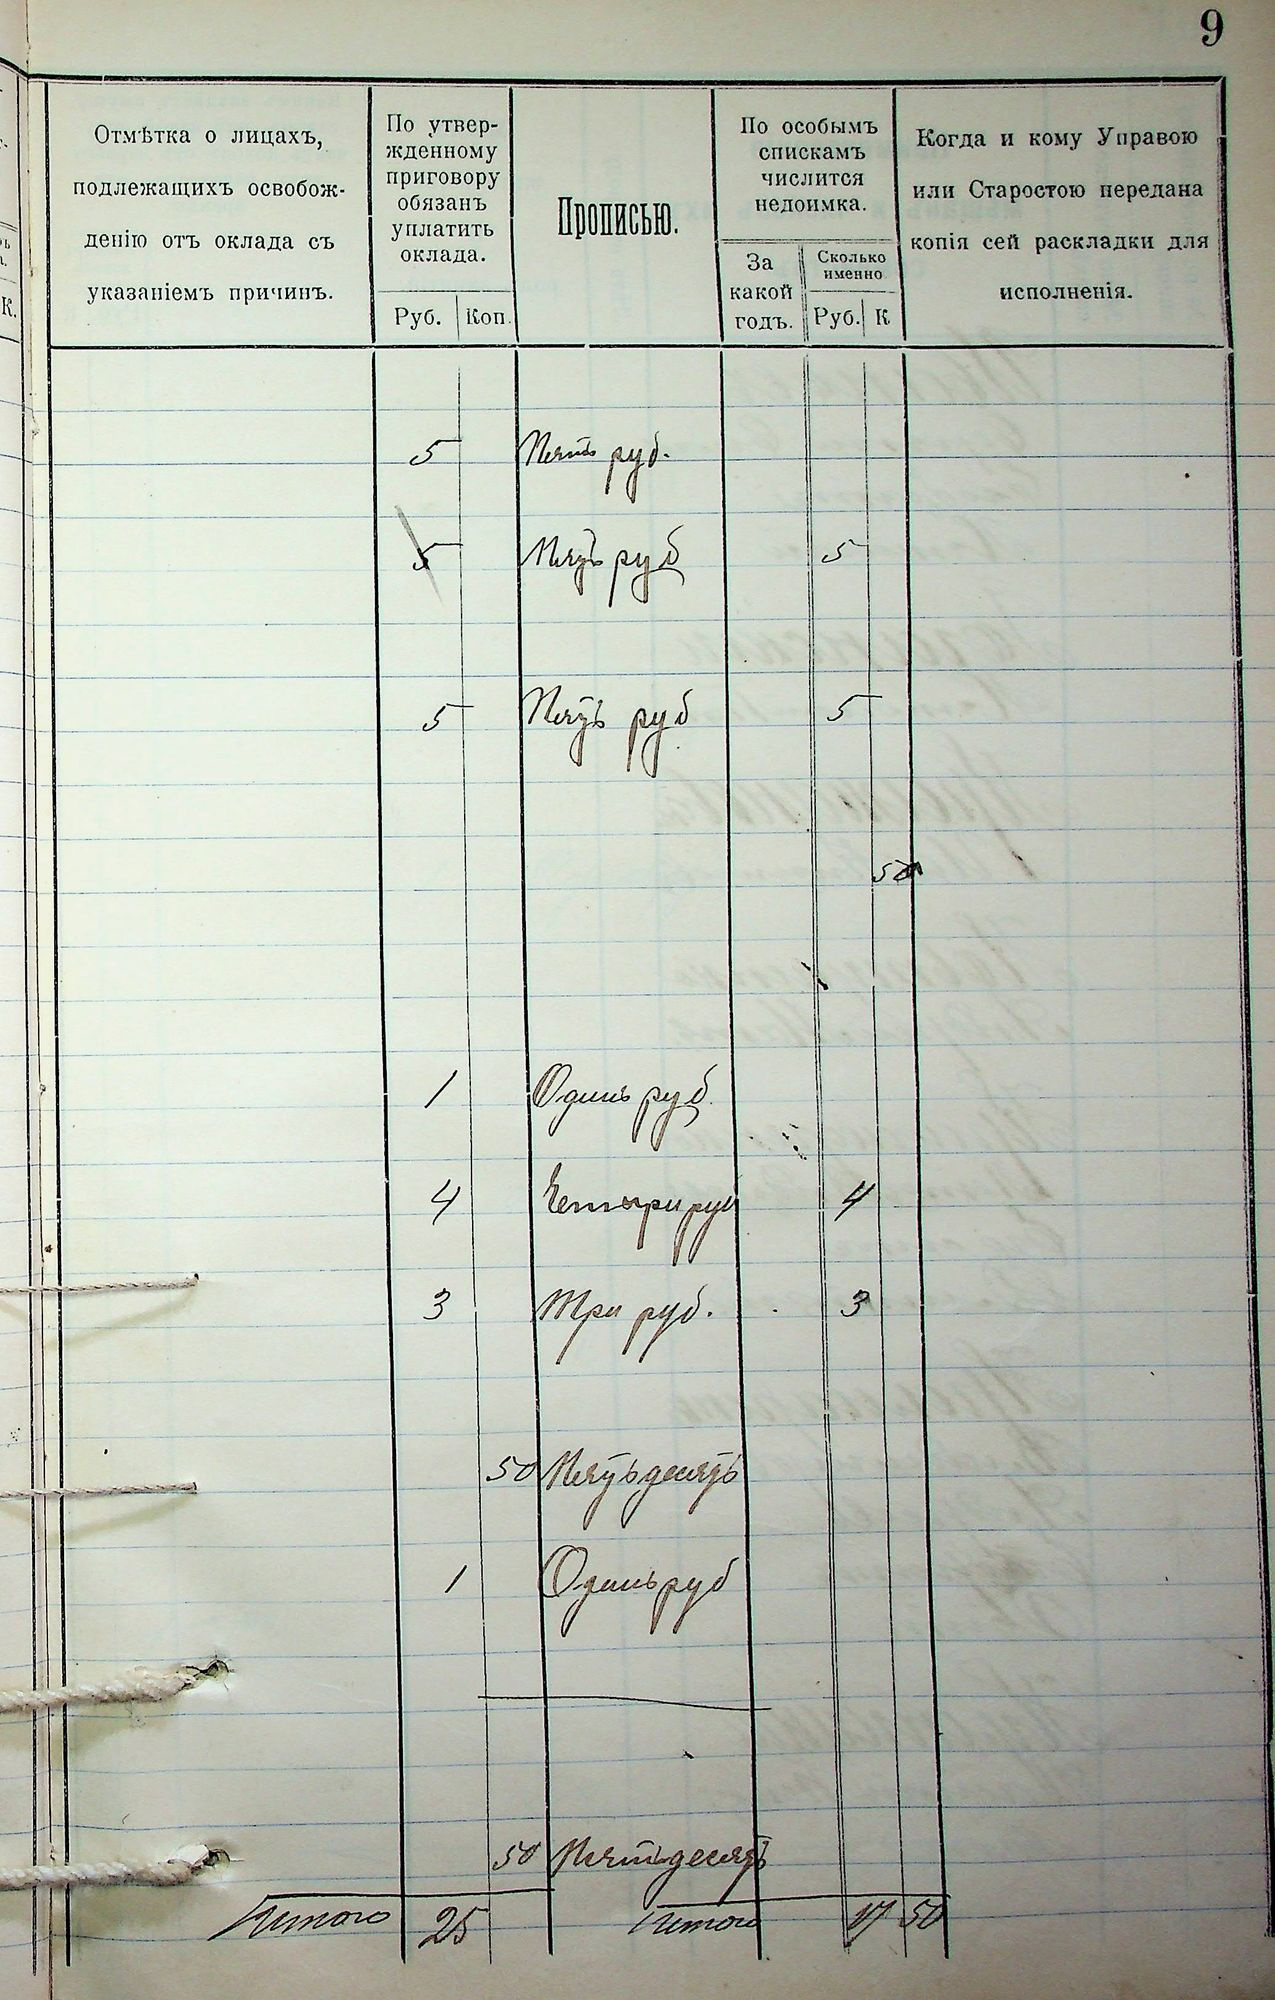 9
Отмѣтка о лицахъ,
подлежащихъ освобож-
денію отъ оклада съ
указаніемъ причинъ.
По утвер-
жденному
приговору
обязанъ
уплатить
оклада.
Руб. Коп.
Прописью.
По особымъ
спискамъ
числится
недоимка.
За
какой
годъ.
Сколько
именно
Руб. К
Когда и кому Управою
или Старостою передана
копія сей раскладки для
исполненія.
К.
5 Пять руб.
5 Пять руб 5
5 Пять руб 5
50
1 Одинъ руб.
4 Четыри руб 4
3 Три руб. 3
50 Пятьдесять
1 Одинъ руб
50 Пятьдесять
Итого 25 Итого 17 50